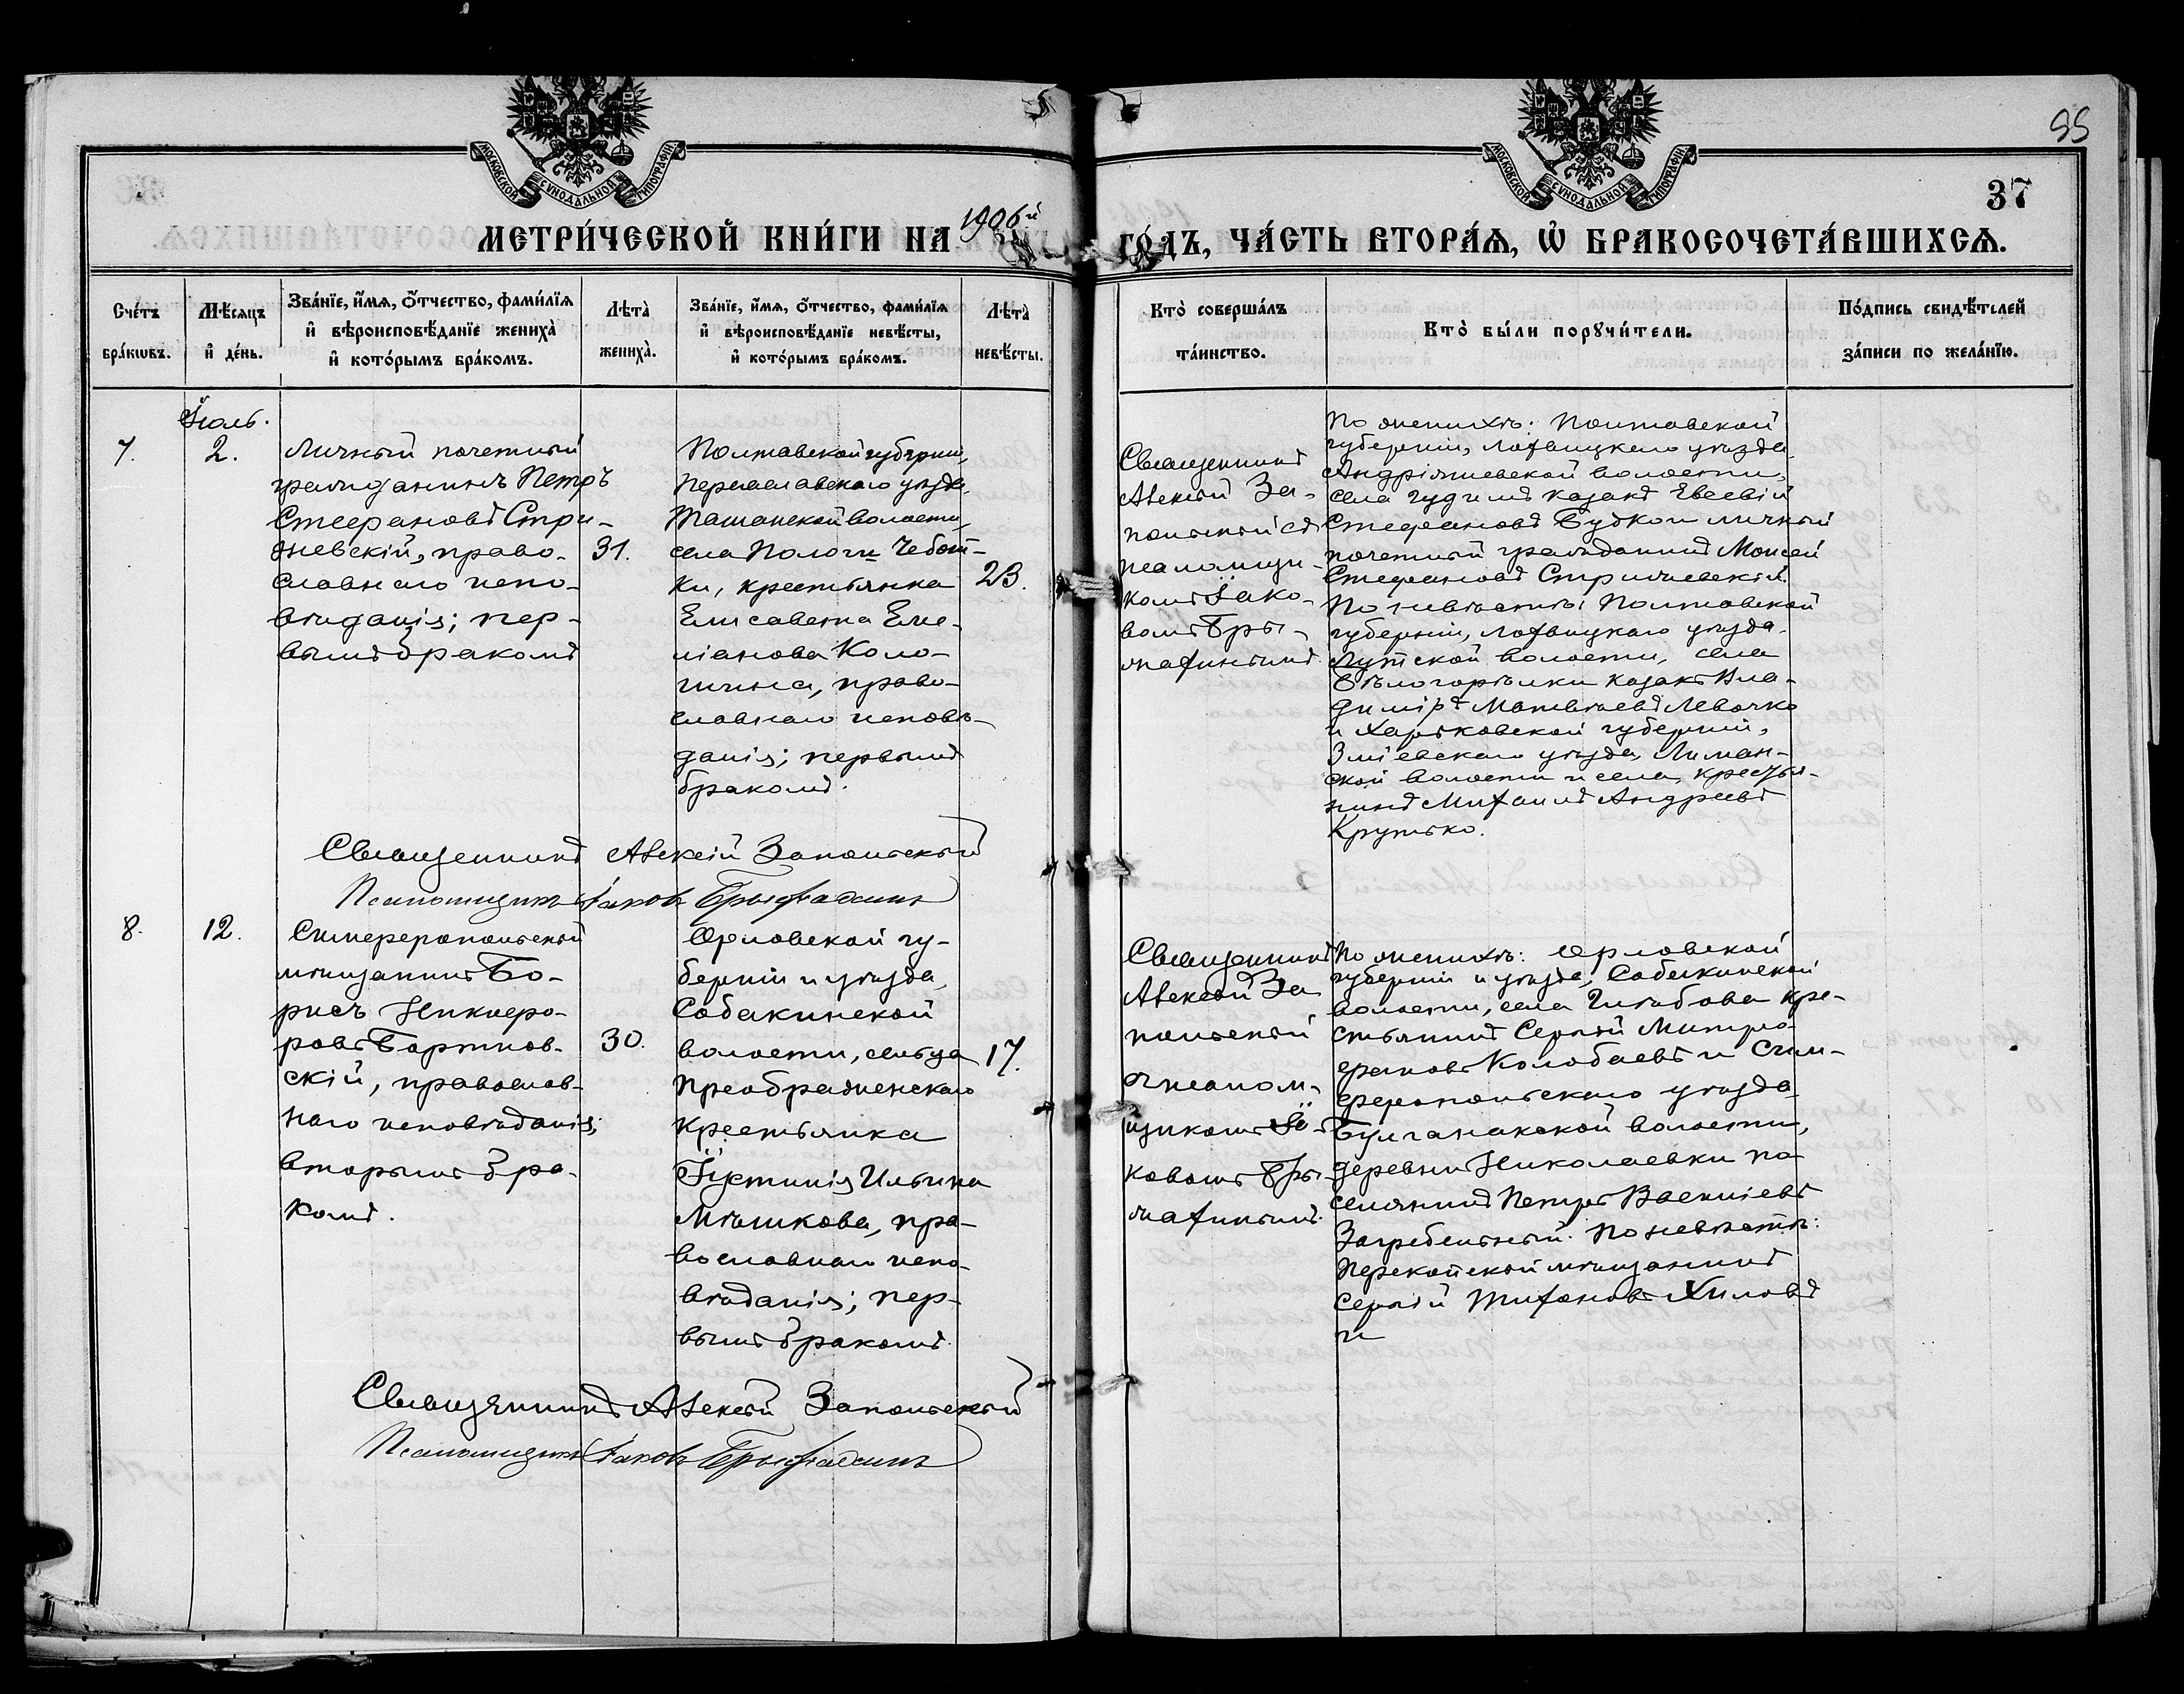 55
37
МОСКОВСКОЙ СѴНОДАЛЬНОЙ ТИПОГРАФІИ
МОСКОВСКОЙ СѴНОДАЛЬНОЙ ТИПОГРАФІИ
МЕТРИ́ЧЕСКОЙ КНИ́ГИ НА 1906й ГО́ДЪ, ЧА́СТЬ ВТОРА́Я, Ѡ БРАКОСОЧЕТА́ВШИХСЯ.
Сче́тъ
бра́кѡвъ.
Мѣ́сяцъ
и҆ де́нь.
Зва́нїе, и҆́мя, ѻ҆́тчество, фами́лїя
и҆ вѣроисповѣ́данїе жениха̀
и҆ кото́рымъ бра́комъ.
Лѣта̀
жениха̀.
Зва́нїе, и҆́мя, ѻ҆́тчество, фами́лїя
и҆ вѣроисповѣ́данїе невѣ́сты,
и҆ кото́рымъ бра́комъ.
Лѣта̀
невѣ́сты.
Кто̀ соверша́лъ
та́инство.
Кто̀ бы́ли порꙋчи́тели.
По́дпись свидѣ́телей
за́писи по жела́нїю.
7.
Іюль.
2.
Личный почетный
гражданинъ Петръ
Стефановъ Стри-
жевскій, право-
славнаго испо-
вѣданія; пер-
вымъ бракомъ
31.
Полтавской губерніи,
Переяславскаго уѣзда,
Ташанской волости,
села Пологи Чебот-
ки, крестьянка
Елисавета Еме-
ліанова Коло-
шина, право-
славнаго исповѣ-
данія; первымъ
бракомъ.
23.
Священникъ
Алексѣй За-
польскій съ
псаломщи-
комъ Іако-
вомъ Бры-
жахинымъ.
По женихѣ: Полтавской
губерніи, Лохвицкаго уѣзда,
Андріяшевской волости,
села Гудимъ казакъ Евсевій
Стефановъ Будко и личный
почетный гражданинъ Моисей
Стефановъ Стрижевскій.
По невѣстѣ: Полтавской
губерніи, Лохвицкаго уѣзда,
Лутской волости, села
Бѣлогорѣлки казакъ Вла-
диміръ Матвѣевъ Левочко
и Харьковской губерніи,
Зміевскаго уѣзда, Лиман-
ской волости и села, крестья-
нинъ Михаилъ Андреевъ
Крутько.
Священникъ Алексѣй Запольскій
Псаломщикъ Іаковъ Брыжахинъ
8.
12.
Симферопольскій
мѣщанинъ Бо-
рисъ Никифо-
ровъ Бортнов-
скій, православ-
наго исповѣданія;
вторымъ бра-
комъ.
30.
Орловской гу-
берніи и уѣзда,
Собакинской
волости, сельца
Преображенскаго
крестьянка
Іустинія Ильина
Мѣшкова, пра-
вославнаго испо-
вѣданія; пер-
вымъ бракомъ.
17.
Священникъ
Алексѣй За
польскій
съ псалом-
щикомъ Іа-
ковомъ Бры-
жахинымъ.
По женихѣ: Орловской
губерніи и уѣзда, Собакинской
волости, села Глѣбова кре-
стьянинъ Сергѣй Митро-
фановъ Колобаевъ и Сим-
феропольскаго уѣзда
Булганакской волости,
деревни Николаевки по-
селянинъ Петръ Василіевъ
Загребельный. По невѣстѣ:
Перекопскій мѣщанинъ
Сергѣй Тихоновъ Хиловъ
и
Священникъ Алексѣй Запольскій
Псаломщикъ Іаковъ Брыжахинъ